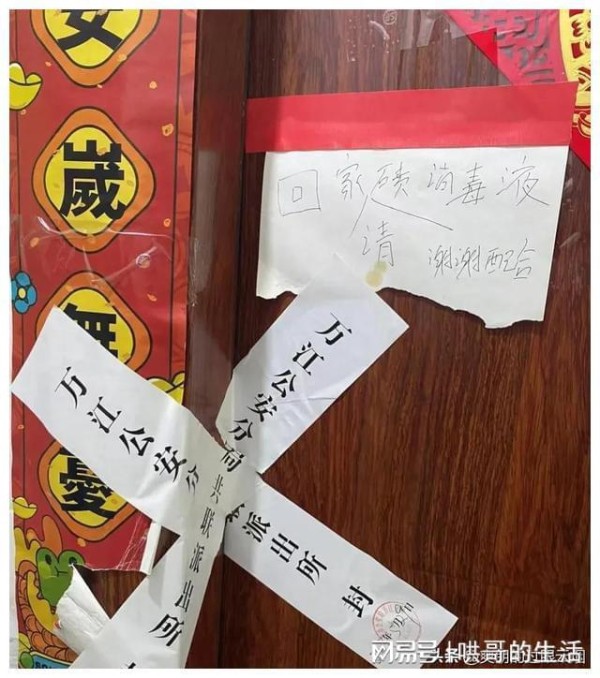 歲
無
憂
回家喷消毒液
请
谢谢配合
万江公安分局共联派出所
万江公安分派出所 封
网易号 | 哄哥的生活